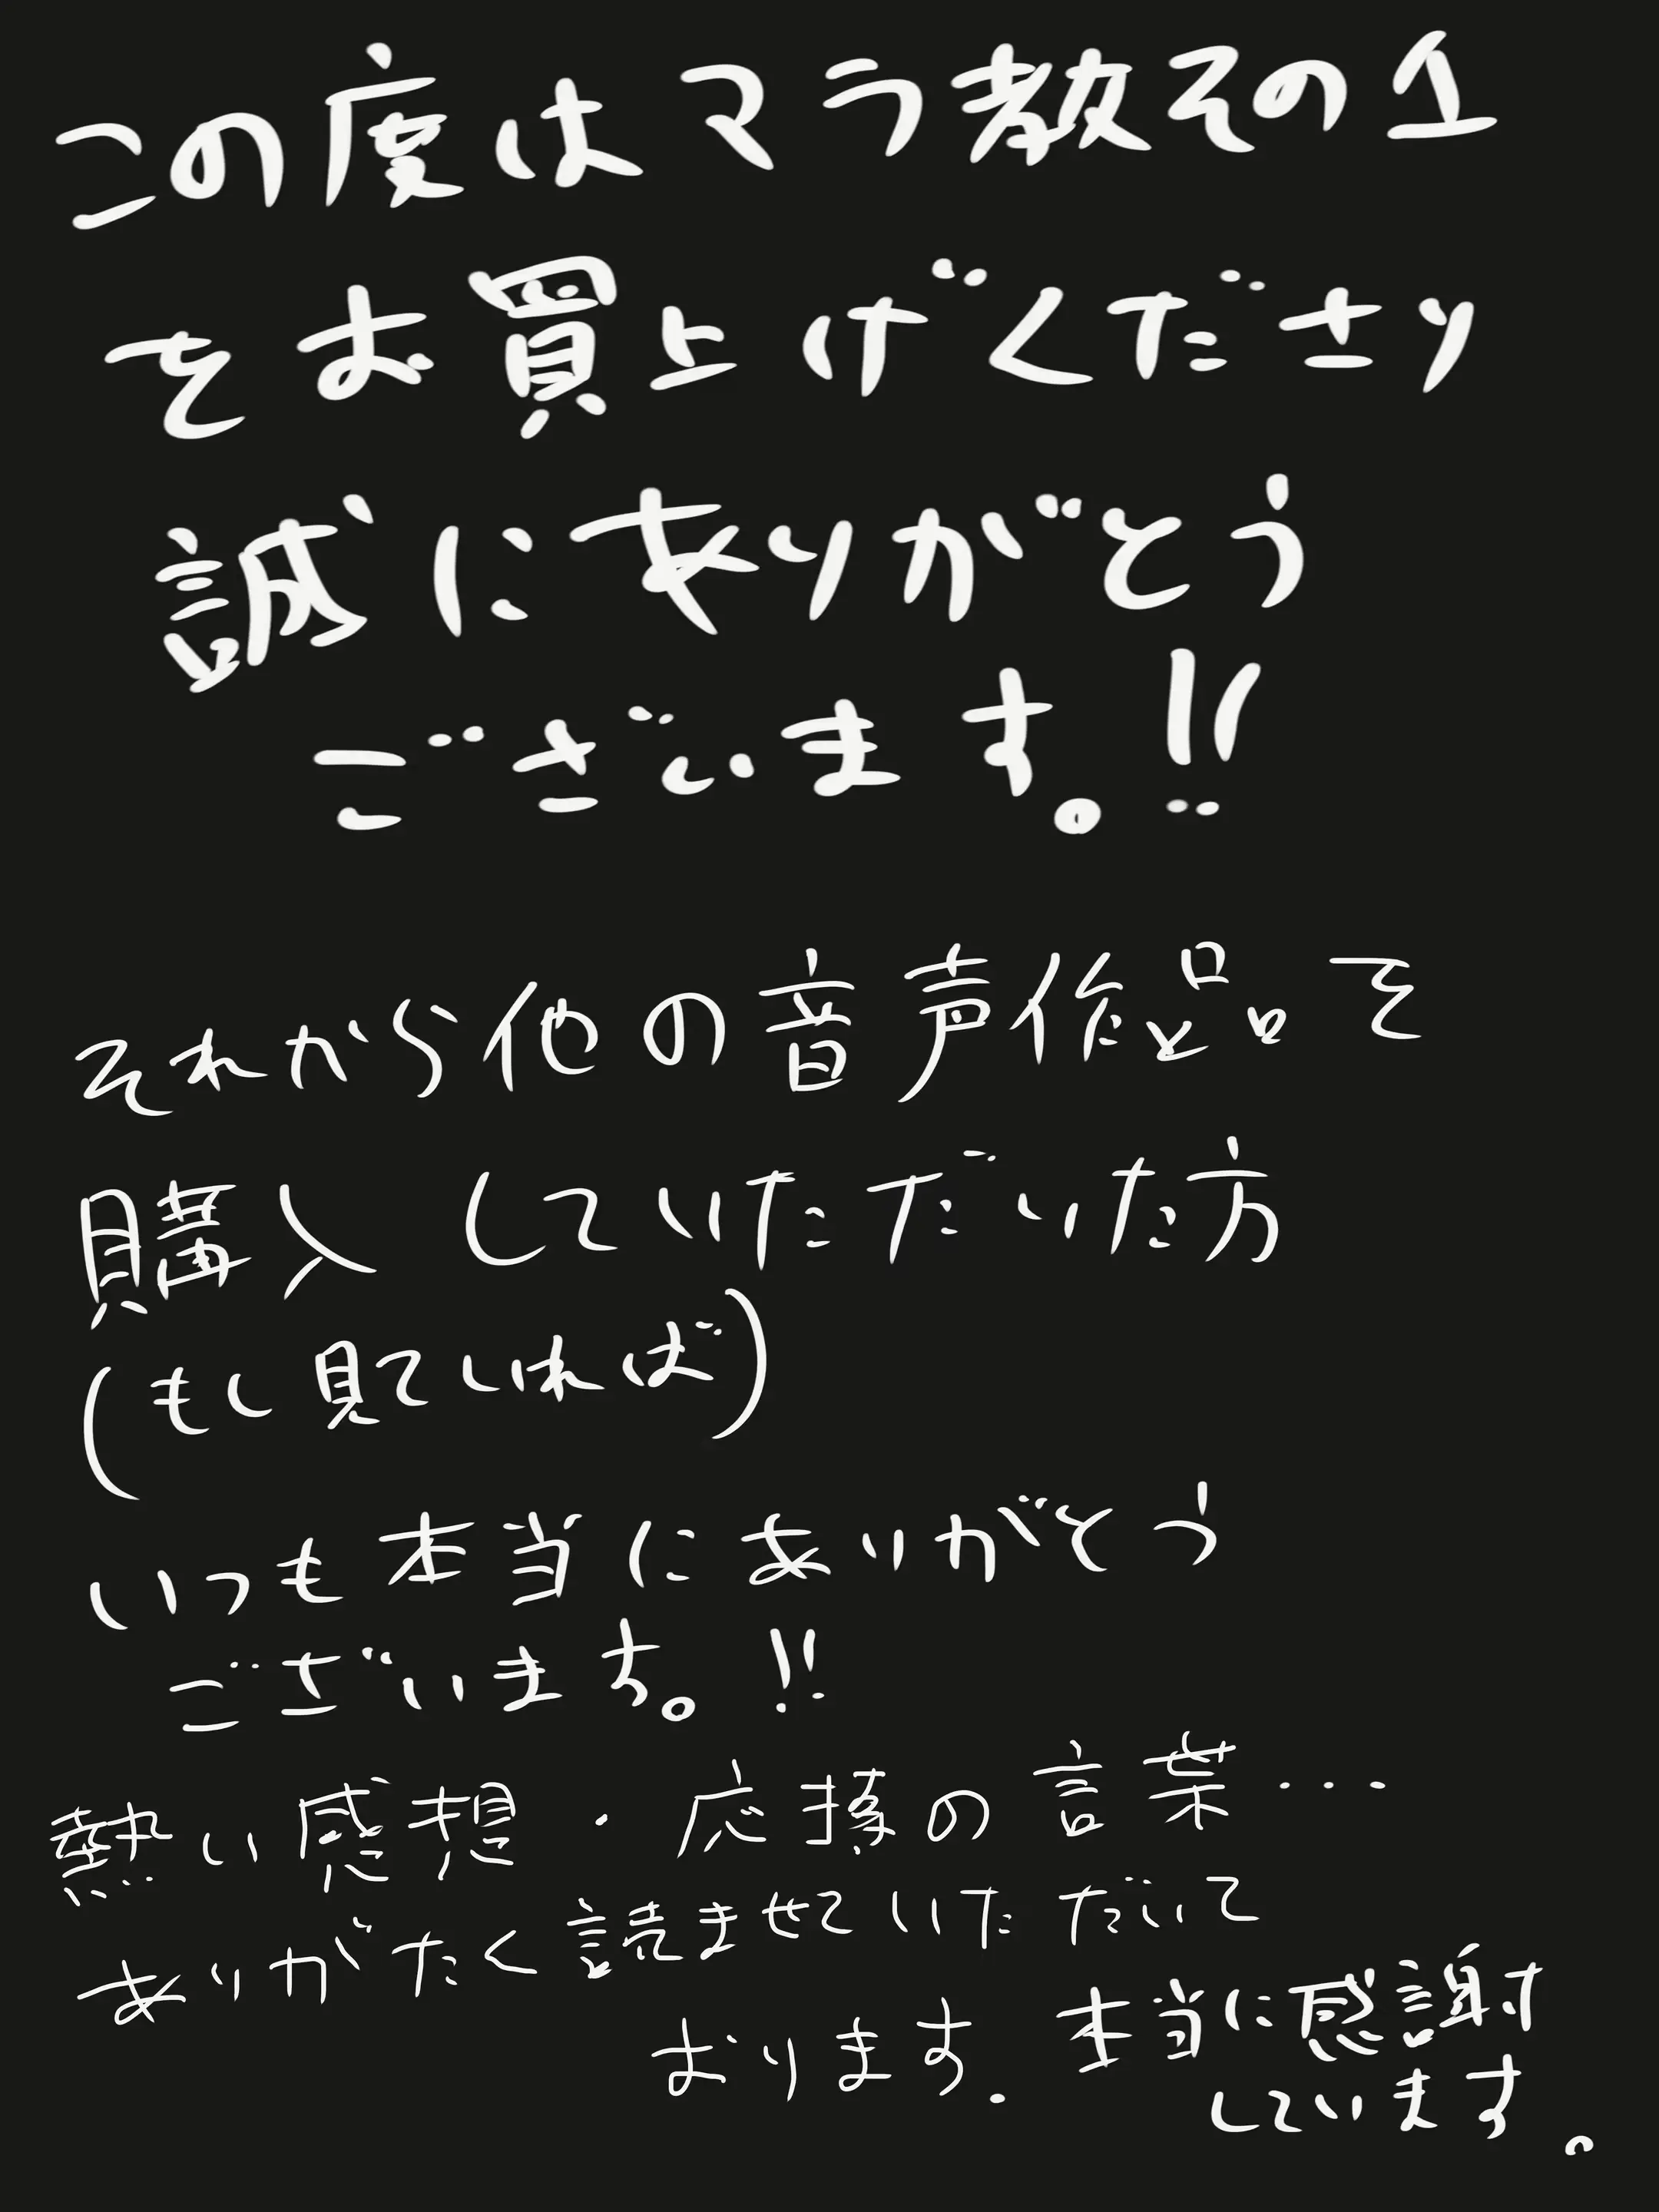 この度はマラ教その1
をお買上げくださり
誠にありがとう
ございます。!!
それから他の音声作品って
購入していただいた方
(もし見ていれば)
いつも本当にありがとう
ございます。!!
熱い感想・応援の言葉…
ありがたく読ませていただいて
おります.本当に感謝
しています。